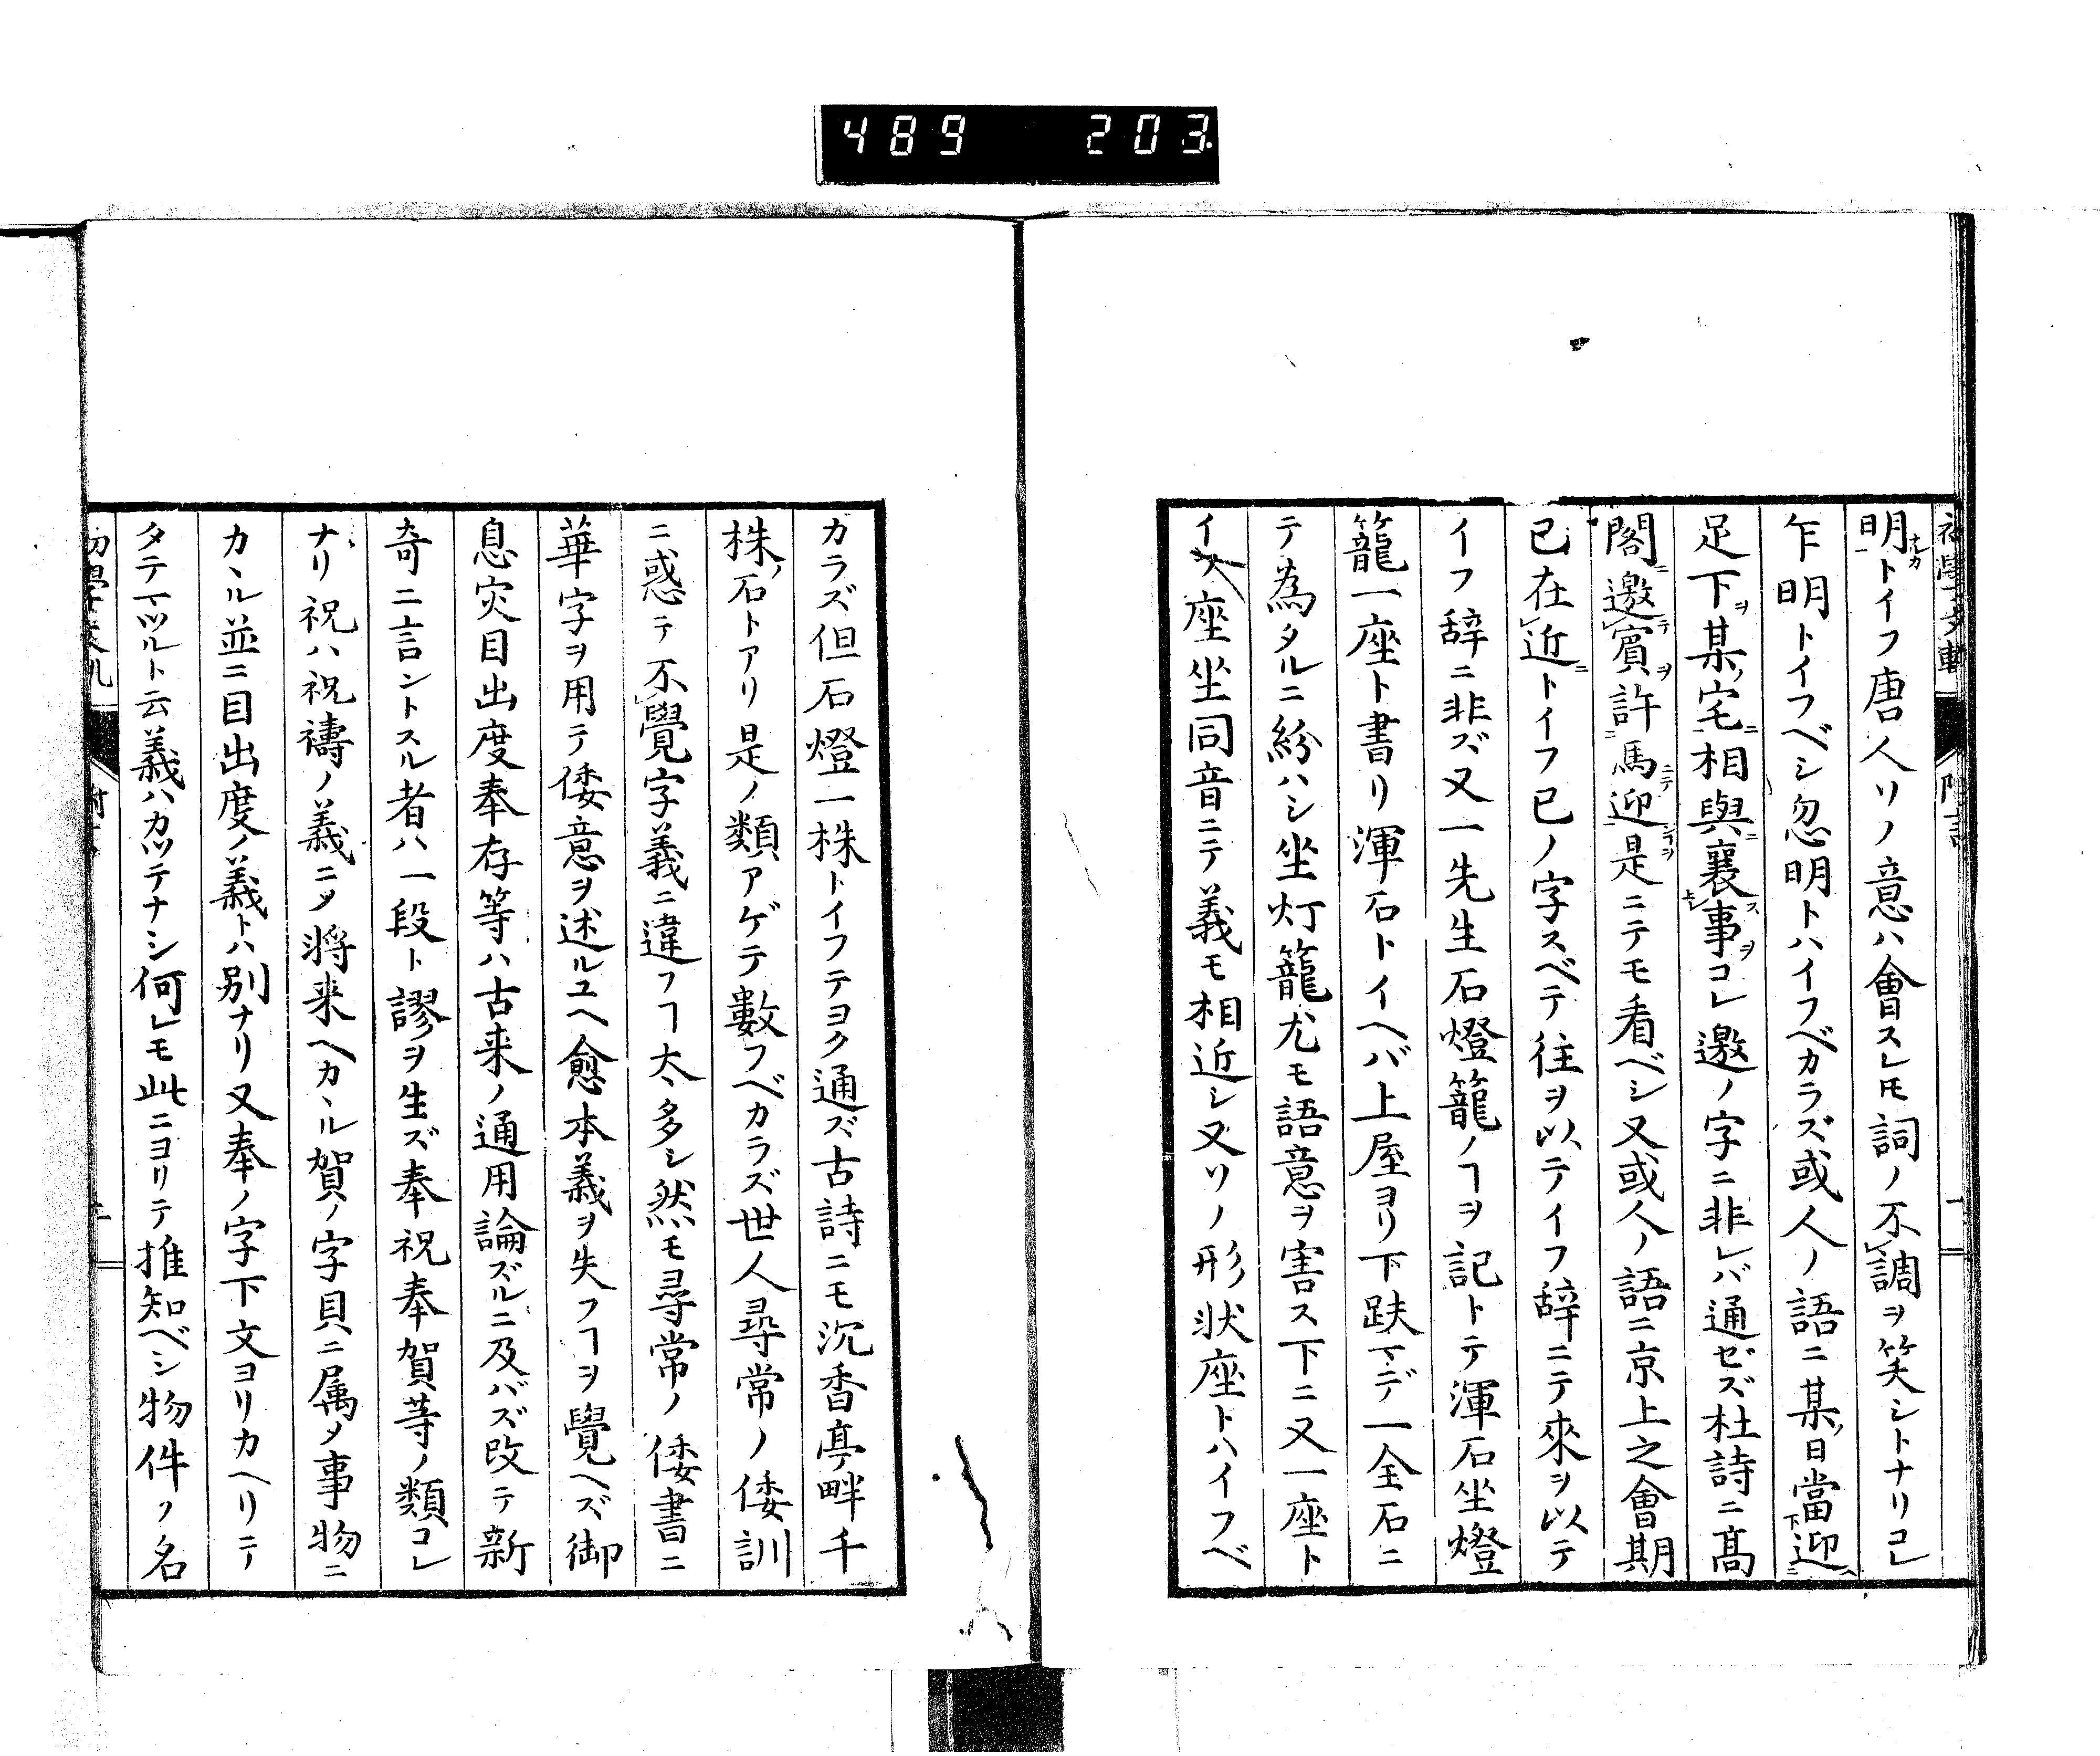 489 203
明トイフ唐人ソノ意ハ會スレ𪜈詞ノ不調ヲ笑シトナリコレ
乍明トイフベシ忽明トハイフベカラズ或人ノ語ニ某日當迎
足下ヲ某宅ニ相與ニ襄事ヲコレ邀ノ字ニ非レバ通ゼズ杜詩ニ髙
閣邀賓許馬迎是ニテモ看ベシ又或人ノ語ニ京上之會期
已在近トイフ已ノ字スベテ往ヲ以テイフ辞ニテ來ヲ以テ
イフ辞ニ非ズ又一先生石燈籠ノヿヲ記トテ渾石坐燈
籠一座ト書リ渾石トイヘバ上屋ヨリ下趺マデ一全石ニ
テ為タルニ紛ハシ坐灯籠尤モ語意ヲ害ス下ニ又一座ト
イ入座坐同音ニテ義モ相近シ又ソノ形状座トハイフベ
カラズ但石燈一株トイフテヨク通ズ古詩ニモ沉香亭畔千
株石トアリ是ノ類アゲテ數フベカラズ世人尋常ノ倭訓
ニ惑テ不覺字義ニ違フヿ太多シ然モ尋常ノ倭書ニ
華字ヲ用テ倭意ヲ述ルユヘ愈本義ヲ失フヿヲ覺ヘズ御
息災目出度奉存等ハ古来ノ通用論ズルニ及バズ改テ新
奇ニ言ントスル者ハ一段ト謬ヲ生ズ奉祝奉賀等ノ類コレ
ナリ祝ハ祝禱ノ義ニ〆将来ヘカヽル賀ノ字貝ニ属〆事物ニ
カヽル並ニ目出度ノ義トハ別ナリ又奉ノ字下文ヨリカヘリテ
タテマツルト云義ハカツテナシ何レモ此ニヨリテ推知ベシ物件ノ名